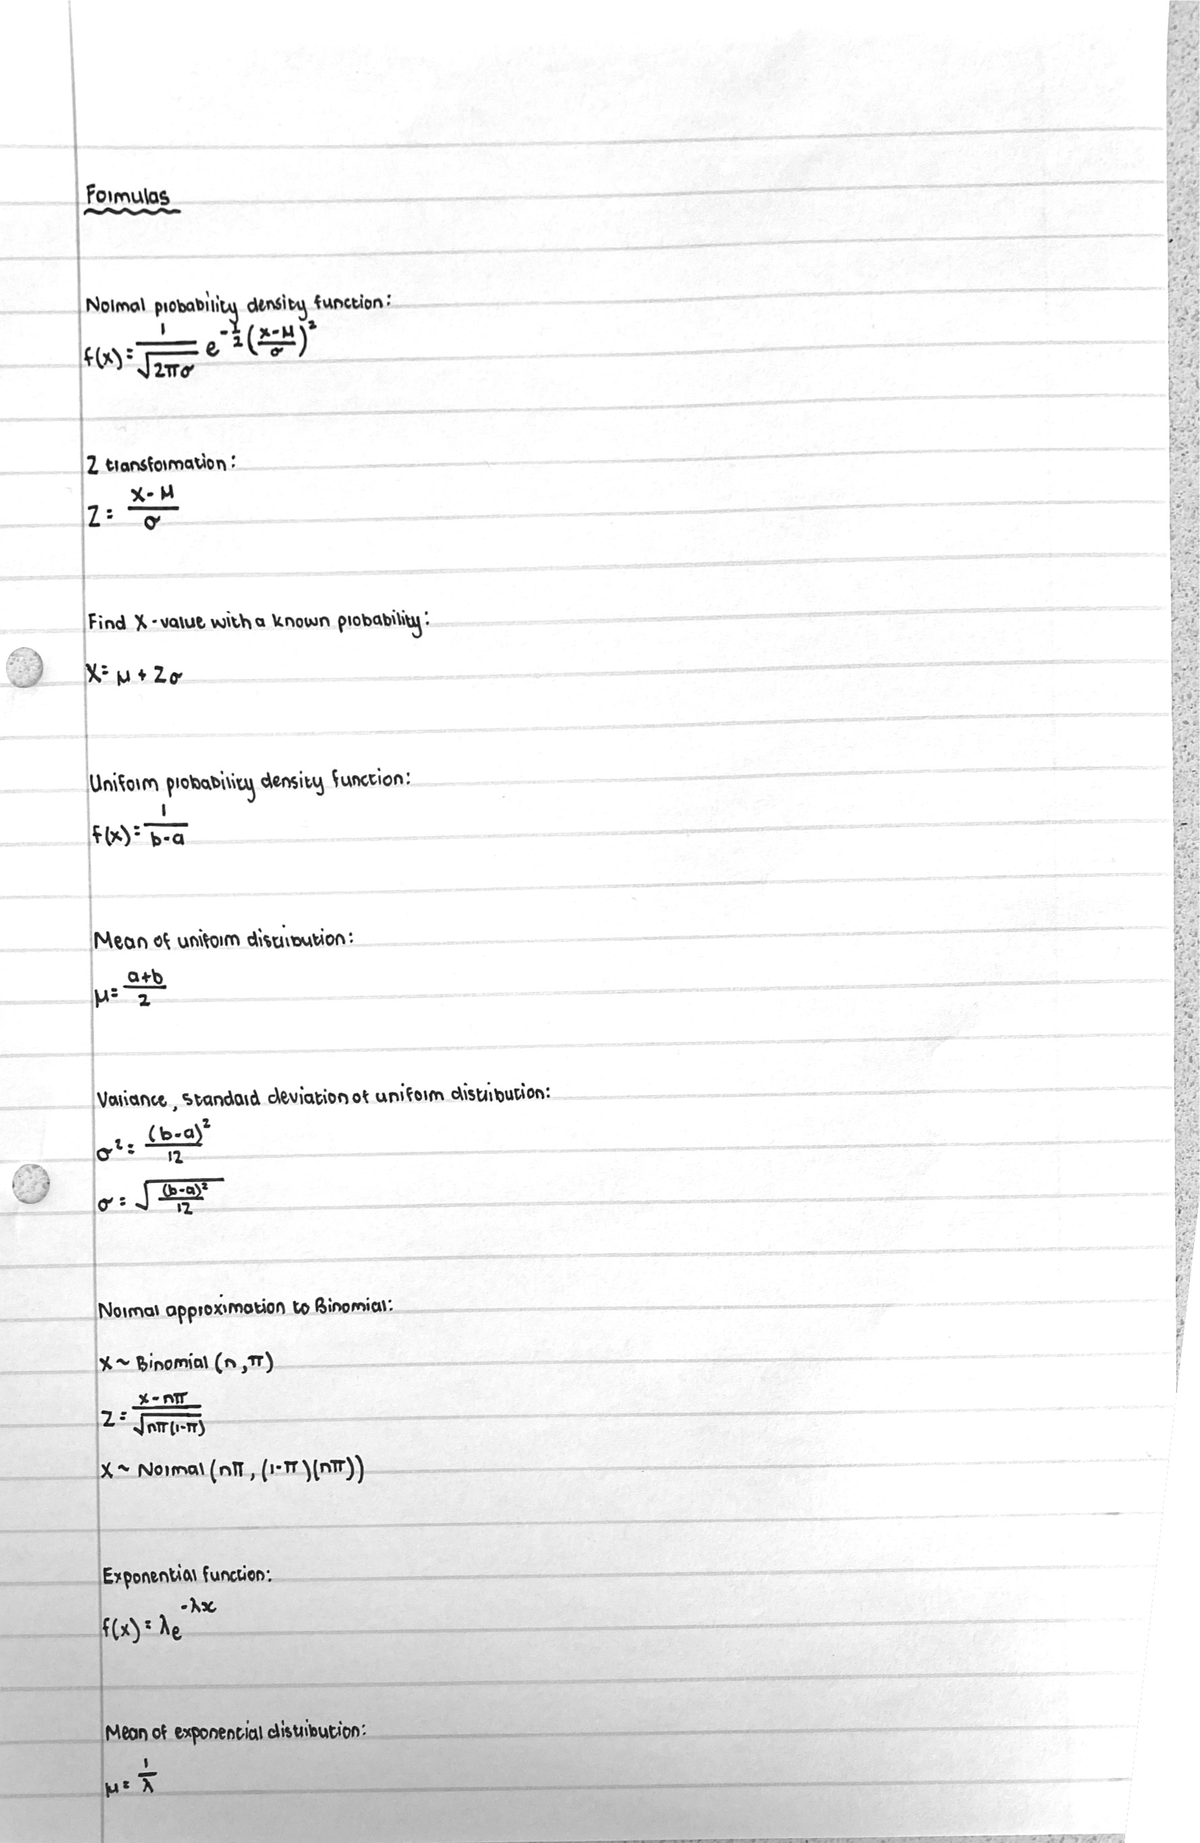 Formulas
Normal probability density function:
f(x) = 1/√(2πσ) e^(-1/2 ((x-μ)/σ)²)
Z transformation:
Z = (X-μ)/σ
Find X-value with a known probability:
X = μ + Zσ
Uniform probability density function:
f(x) = 1/(b-a)
Mean of uniform distribution:
μ = (a+b)/2
Variance, standard deviation of uniform distribution:
σ² = (b-a)²/12
σ = √((b-a)²/12)
Normal approximation to Binomial:
X ~ Binomial (n, π)
Z = (X-nπ)/√(nπ(1-π))
X ~ Normal (nπ, (1-π)(nπ))
Exponential function:
f(x) = λe^(-λx)
Mean of exponential distribution:
μ = 1/λ